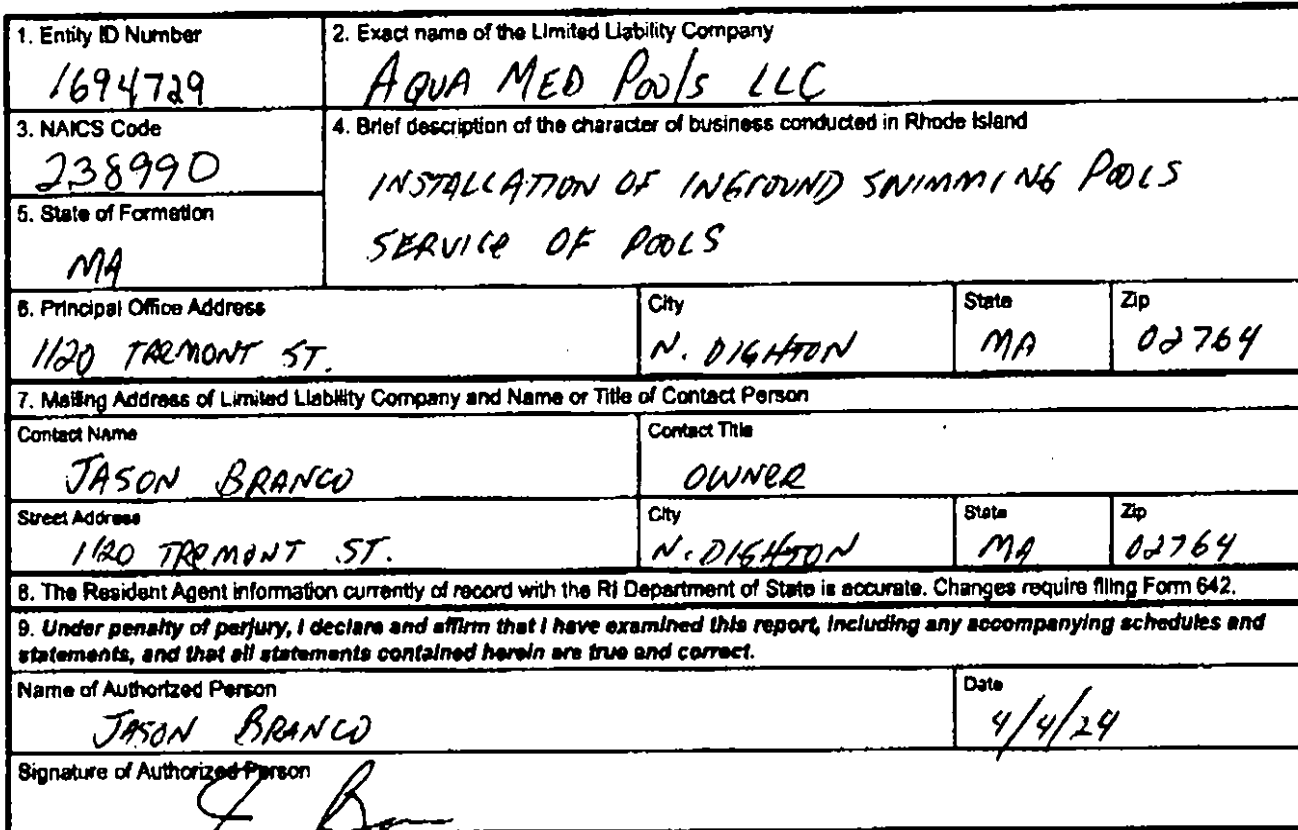 1. Entity ID Number
1694729
2. Exact name of the Limited Liability Company
AQUA MED Pools LLC
3. NAICS Code
238990
4. Brief description of the character of business conducted in Rhode Island
INSTALLATION OF INGROUND SWIMMING POOLS
SERVICE OF POOLS
5. State of Formation
MA
6. Principal Office Address
1120 TREMONT ST.
City
N. DIGHTON
State
MA
Zip
02764
7. Mailing Address of Limited Liability Company and Name or Title of Contact Person
Contact Name
JASON BRANCO
Contact Title
OWNER
Street Address
1120 TREMONT ST.
City
N. DIGHTON
State
MA
Zip
02764
8. The Resident Agent information currently of record with the RI Department of State is accurate. Changes require filing Form 642.
9. Under penalty of perjury, I declare and affirm that I have examined this report, including any accompanying schedules and
statements, and that all statements contained herein are true and correct.
Name of Authorized Person
JASON BRANCO
Date
4/4/24
Signature of Authorized Person